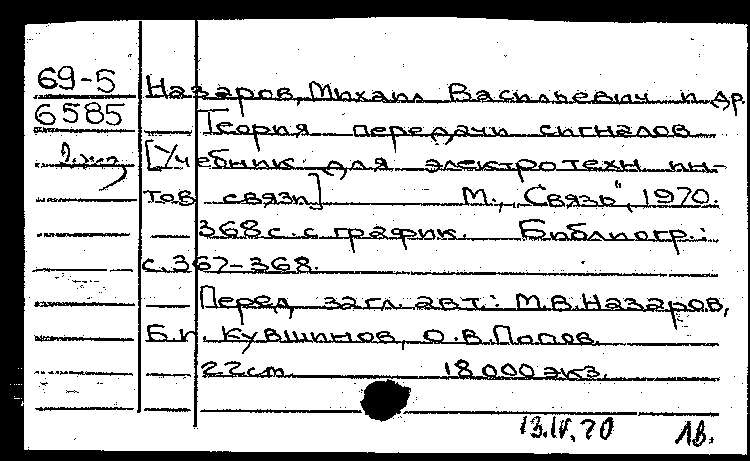 69-5
6585
2 экз
Назаров, Михаил Васильевич и др.
Теория передачи сигналов
[Учебник для электротехн ин-
тов связи] М., „Связь", 1970.
368 с. с график. Библиогр.:
с. 367-368.
Перед загл. авт.: М.В.Назаров,
Б.И. Кувшинов, О.В.Попов.
22 см. 18 000 экз.
13.IV.70 1в.